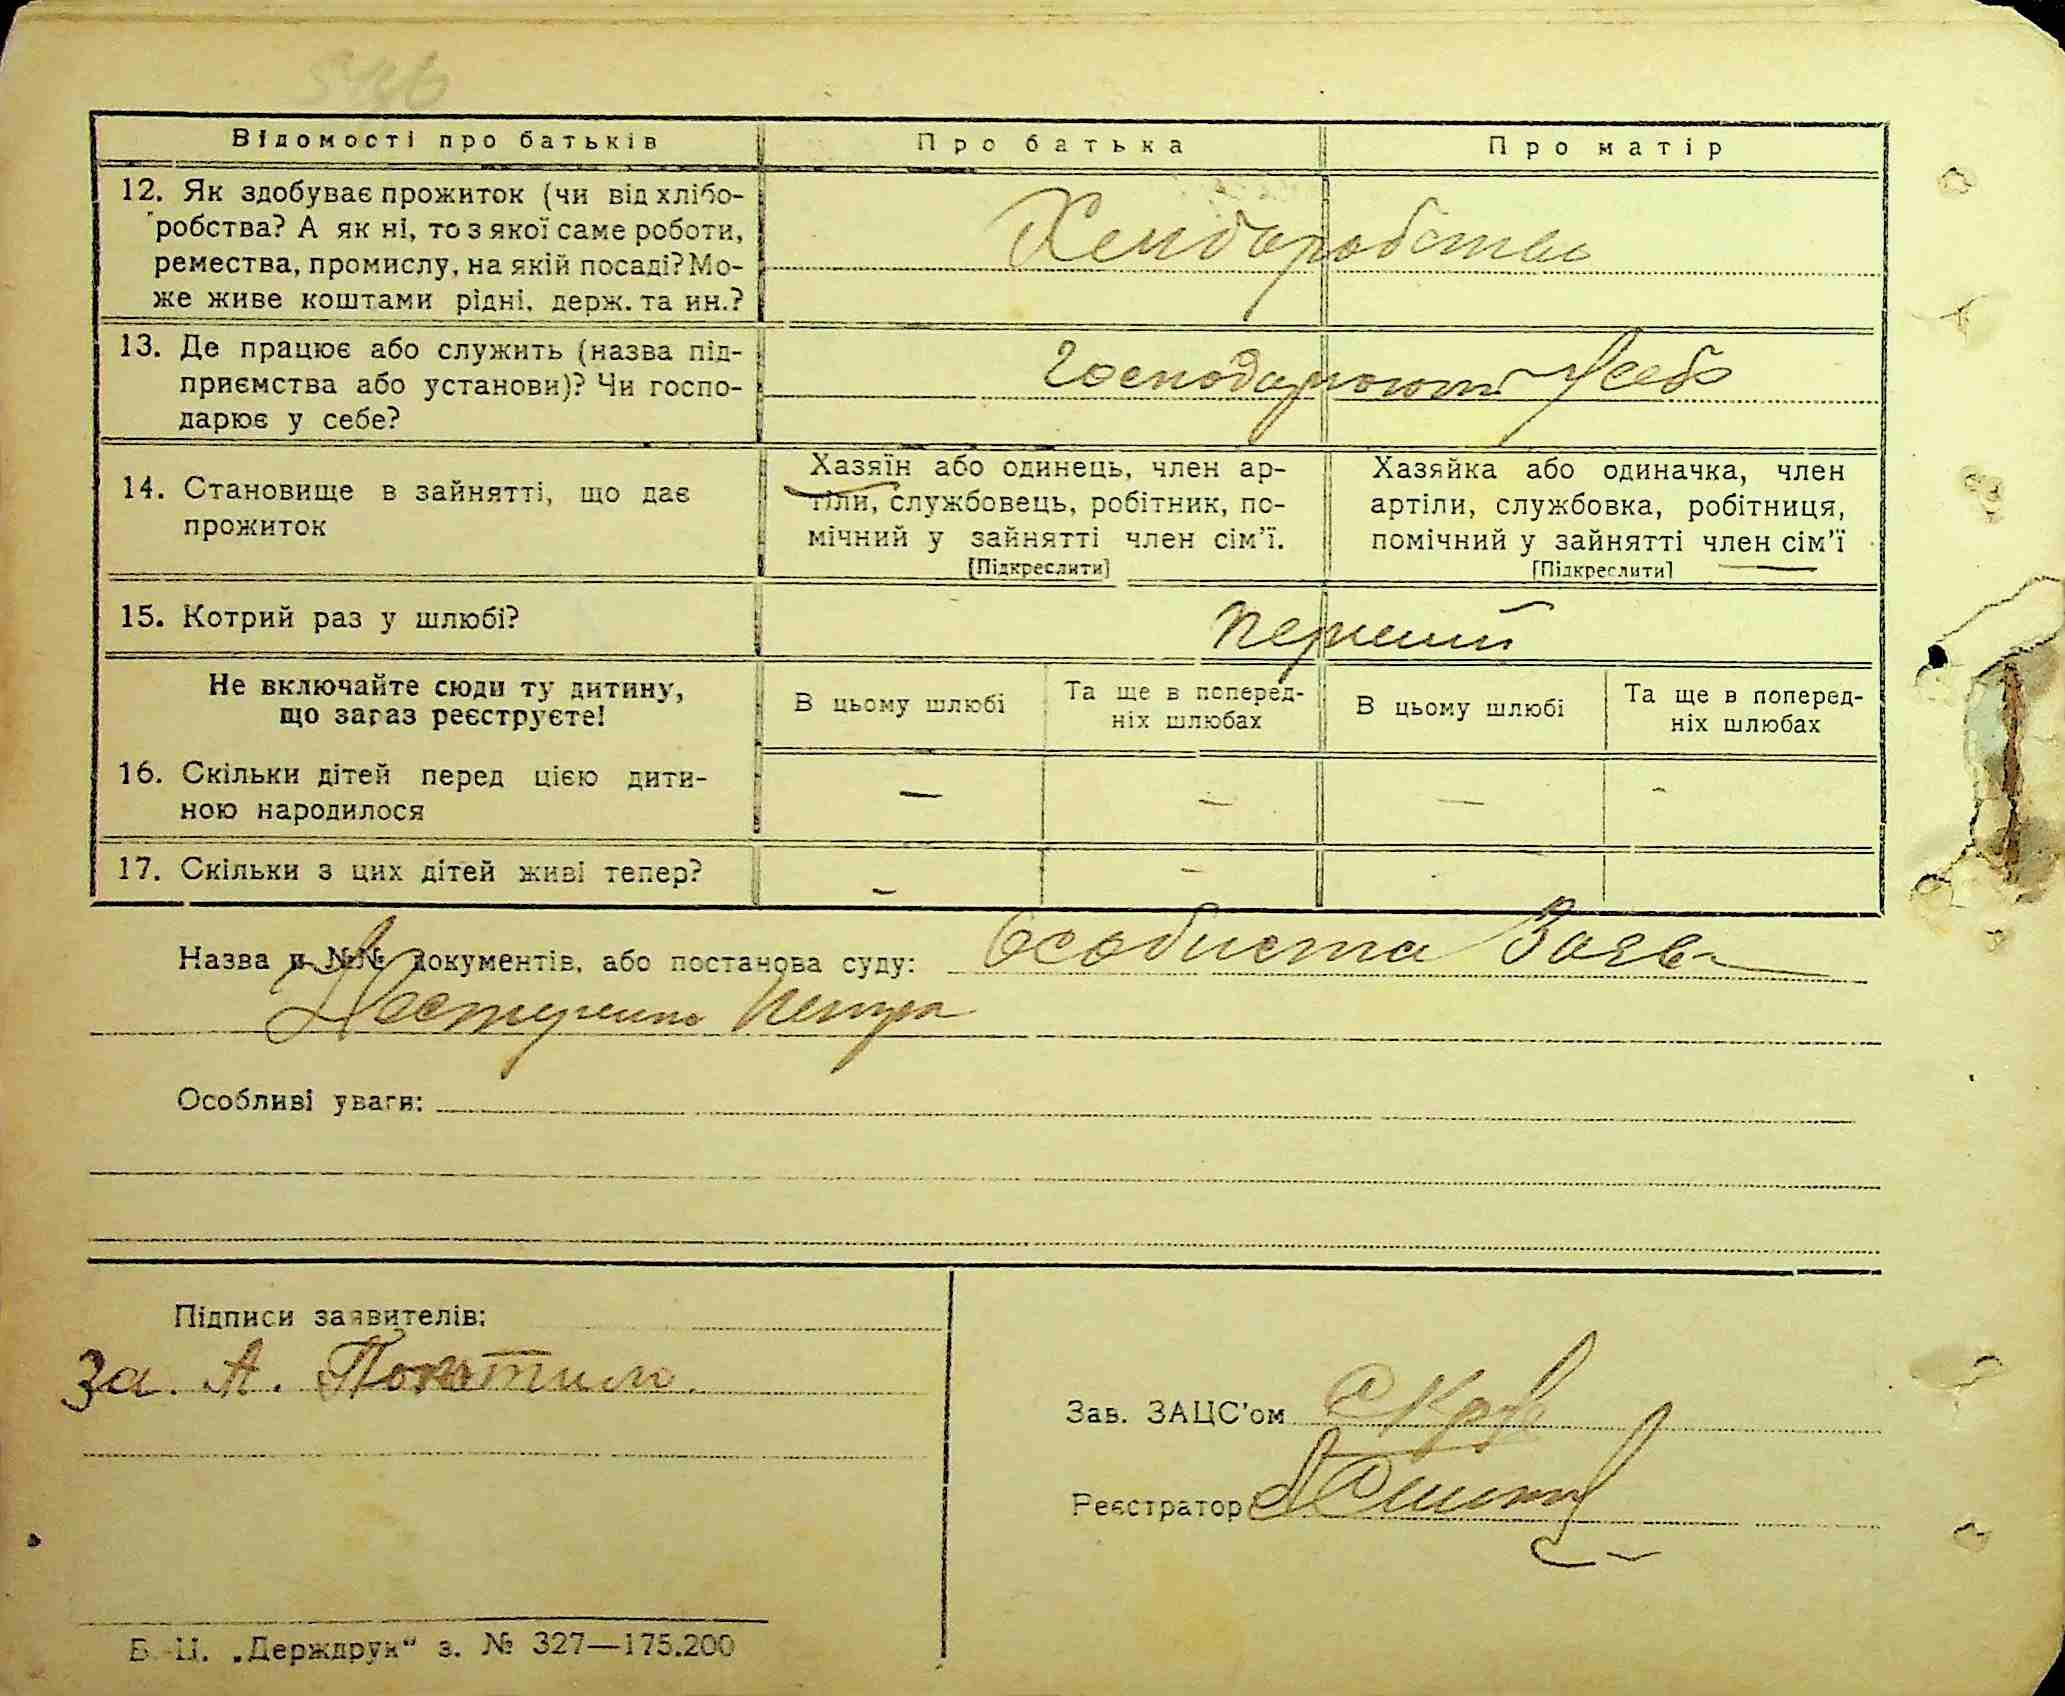 Відомості про батьків
Про батька
Про матір
12. Як здобуває прожиток (чи від хлібо-
робства? А як ні, то з якої саме роботи,
ремества, промислу, на якій посаді? Мо-
же живе коштами рідні, держ. та ин.?
Хлиборобство
13. Де працює або служить (назва під-
приємства або установи)? Чи госпо-
дарює у себе?
Господарюють У себе
14. Становище в зайнятті, що дає
прожиток
Хазяїн або одинець, член ар-
тіли, службовець, робітник, по-
мічний у зайнятті член сім'ї.
[Підкреслити]
Хазяйка або одиначка, член
артіли, службовка, робітниця,
помічний у зайнятті член сім'ї
[Підкреслити]
15. Котрий раз у шлюбі?
перший
Не включайте сюди ту дитину,
що зараз реєструєте!
В цьому шлюбі
Та ще в поперед-
ніх шлюбах
В цьому шлюбі
Та ще в поперед-
ніх шлюбах
16. Скільки дітей перед цією дити-
ною народилося
— — — -
17. Скільки з цих дітей живі тепер?
- -
Назва и №№ документів, або постанова суду: Особиста Заява
Нестеренко Петра
Особливі уваги:
Підписи заявителів:
За. А. Покотило
Зав. ЗАЦС'ом
Реєстратор
Б.-Ц. „Держдрук“ з. № 327—175.200